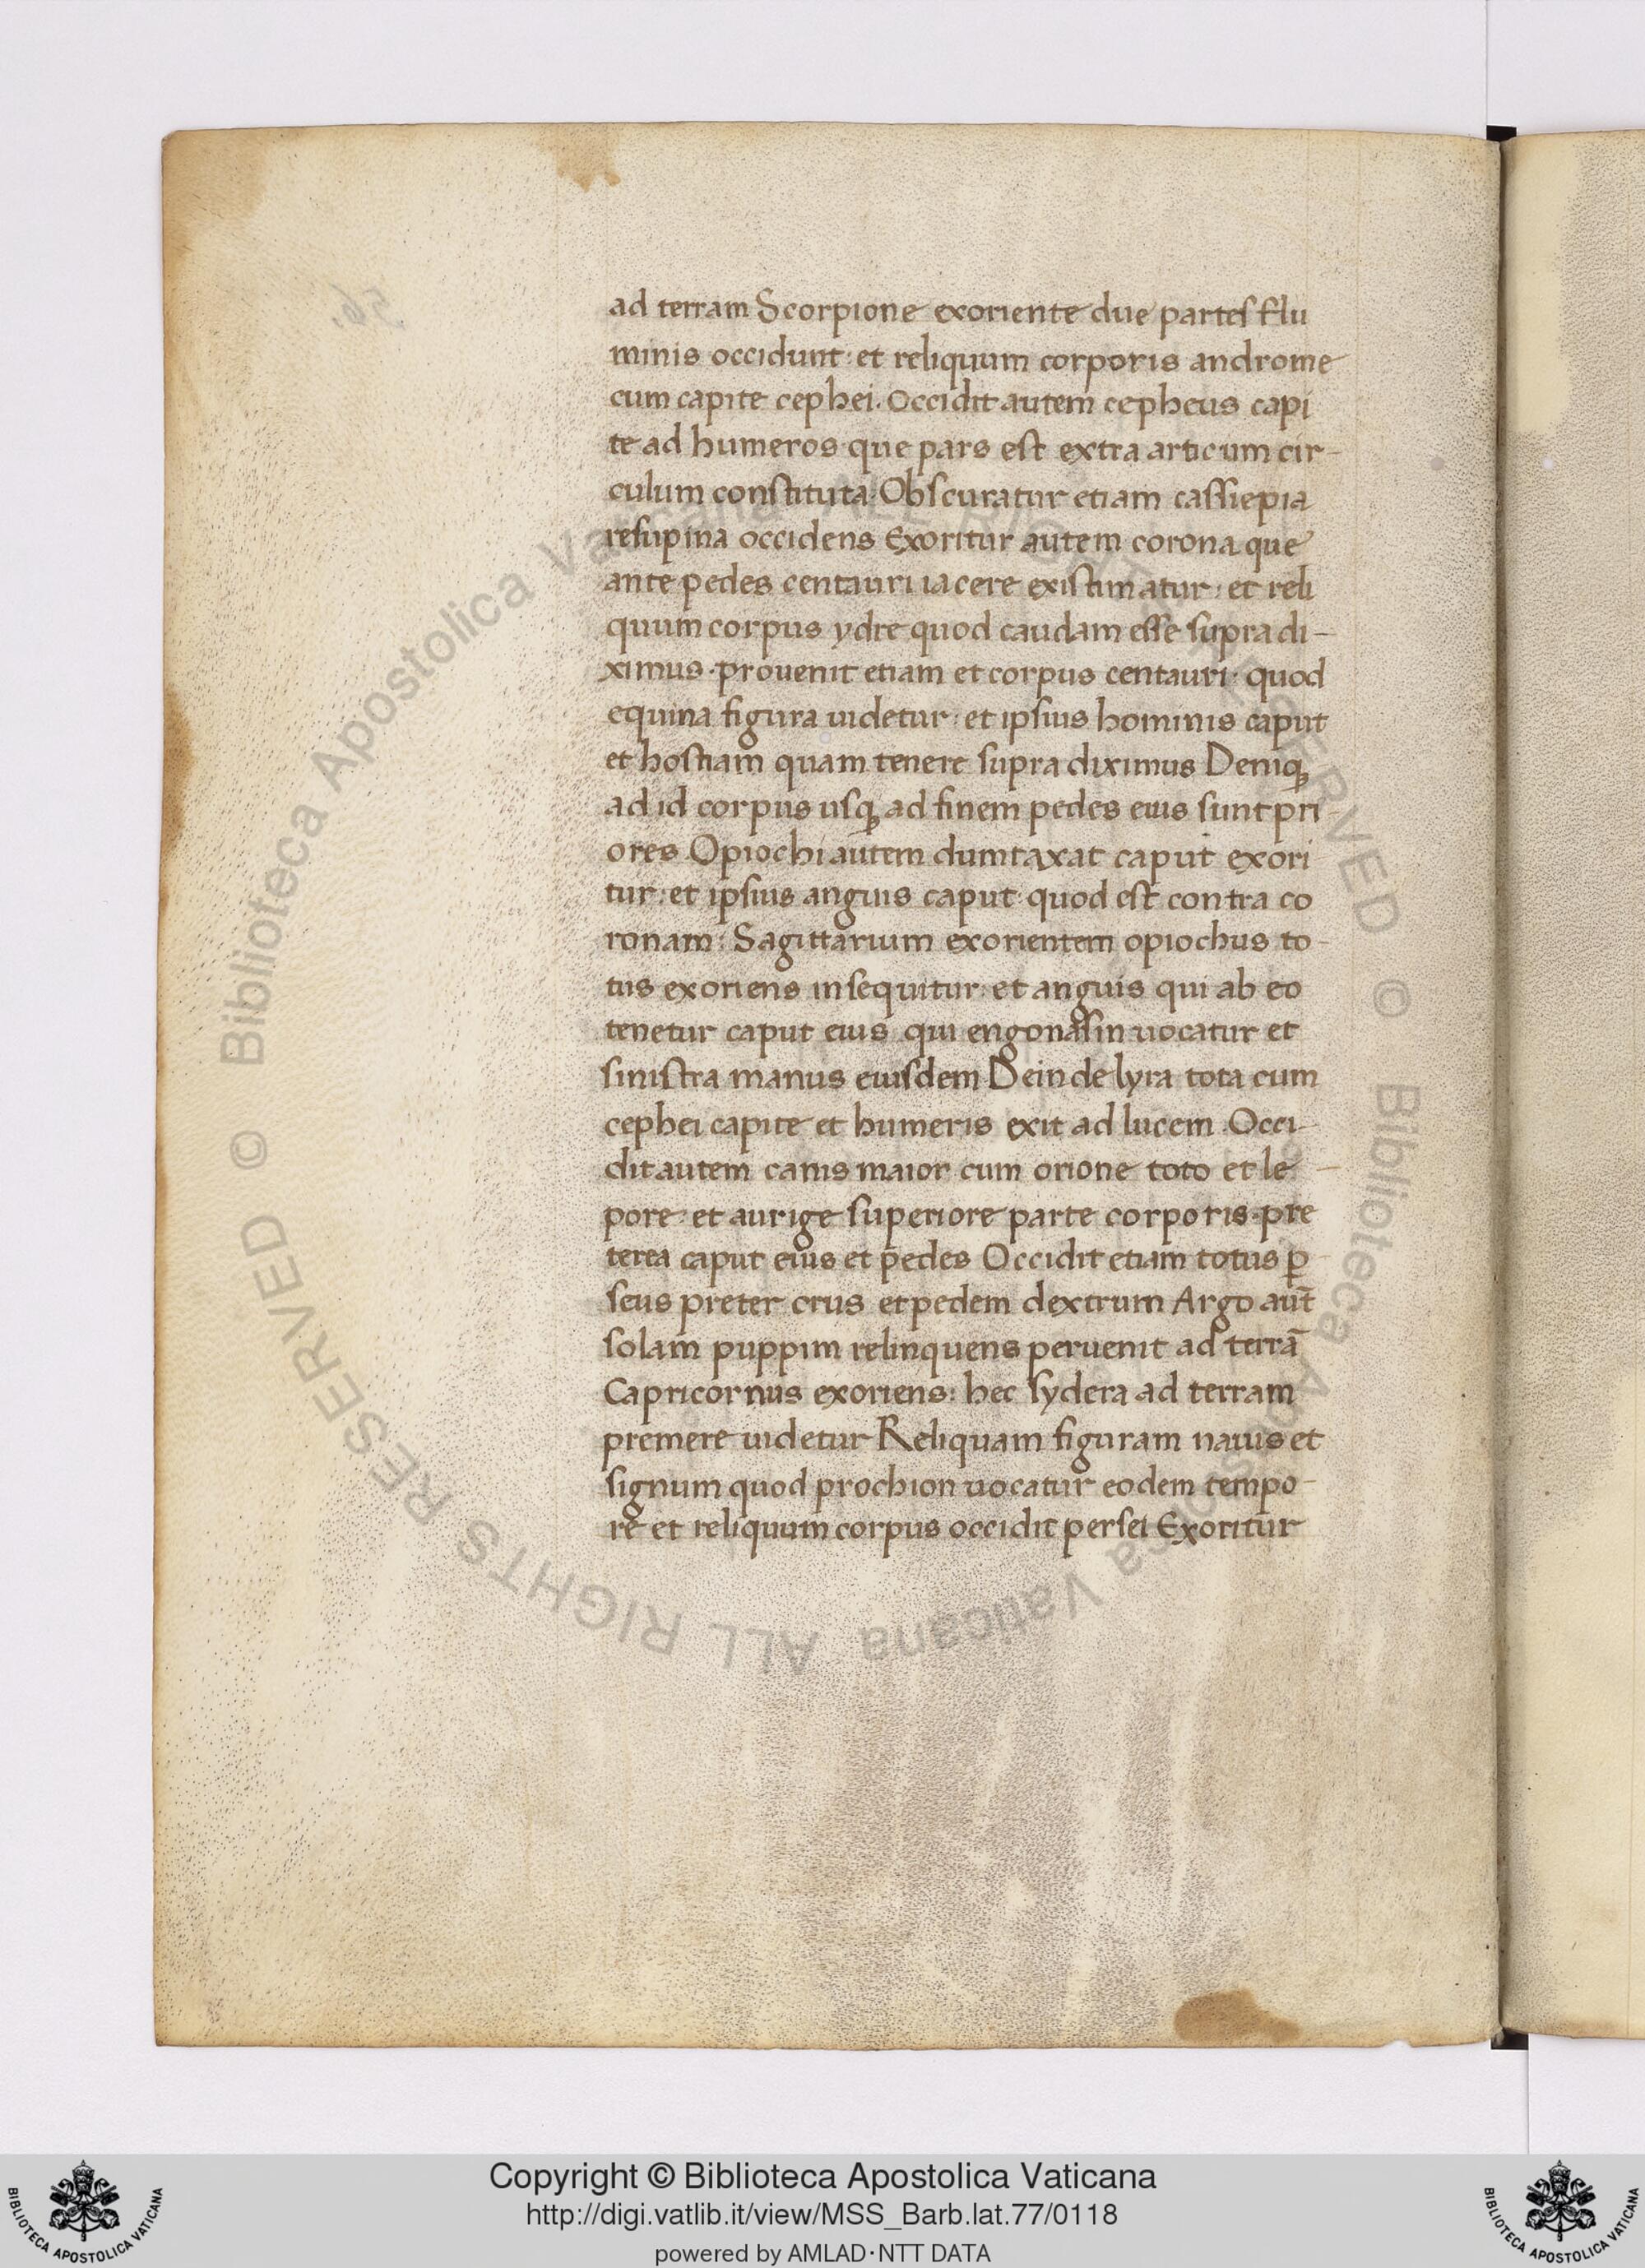 ad terram Scorpione exoriente due partes flu
minis occidunt: et reliquum corporis androme
cum capite cephei. Occidit autem cepheus capi
te ad humeros que pars est extra articum cir-
culum constituta. Obscuratur etiam cassiepia
resupina occidens Exoritur autem corona que
ante pedes centauri iacere existimatur: et reli
quum corpus ydre quod caudam esse supra di-
ximus. prouenit etiam et corpus centauri. quod
equina figura uidetur: et ipsius hominis caput
et hostiam quam tenere supra diximus Deniqꝫ
ad id corpus usqꝫ ad finem pedes eius sunt pri-
ores Opiochi autem dumtaxat caput exori
tur: et ipsius anguis caput quod est contra co
ronam: Sagittarium exorientem opiochus to-
tus exoriens insequitur: et anguis qui ab eo
tenetur caput eius qui engonasin uocatur et
sinistra manus euisdem Deinde lyra tota cum
cephei capite et humeris exit ad lucem. Occi-
dit autem canis maior cum orione toto et le-
pore: et aurige superiore parte corporis. pre
terea caput eius et pedes Occidit etiam totus ꝑ
seus preter crus et pedem dextrum Argo aut̄
solam puppim relinquens peruenit ad terrā
Capricornus exoriens: hec sydera ad terram
premere uidetur Reliquam figuram nauis et
signum quod prochion uocatur eodem tempo-
re et reliquum corpus occidit persei Exoritur
© Biblioteca Apostolica Vaticana ALL RIGHTS RESERVED © Biblioteca Apostolica Vaticana ALL RIGHTS RESERVED
Copyright © Biblioteca Apostolica Vaticana
http://digi.vatlib.it/view/MSS_Barb.lat.77/0118
powered by AMLAD·NTT DATA
BIBLIOTECA APOSTOLICA VATICANA
BIBLIOTECA APOSTOLICA VATICANA